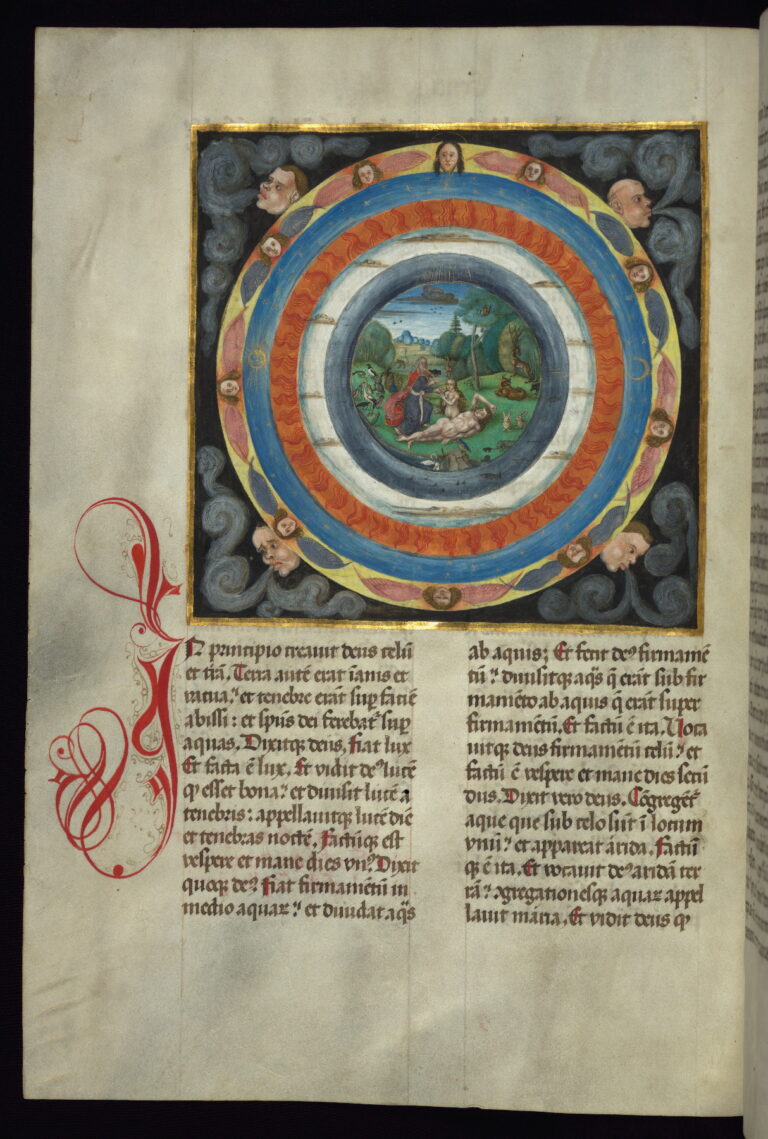 IN principio creauit deus celū
et trā. Terra autē erat īanis et
vacua: et tenebre erāt sup faciē
abissi: et spūs dei ferebat sup
aquas. Dixitq deus. Fiat lux
Et facta ē lux. Et vidit de9 lucē
q esset bona: et diuisit lucē a
tenebris: appellauitq lucē diē
et tenebras noctē. Factūq est
vespere et mane dies vn9 Dixit
quoq de9 Fiat firmamētū in
medio aquar: et diuidat aqs
ab aquis: Et fecit de9 firmamē
tū: diuisitq aqs q erāt sub fir
mamēto ab aquis q erāt super
firmamētū. Et factū ē ita. Uoca
uitq deus firmamētū celū: et
factū ē vespere et mane dies secū
dus. Dixit vero deus. Cōgregēt
aque que sub celo sūt ī locum
vnū: et appareat arida. Factū
q ē ita. Et vocauit de9 aridā ter
rā: 9gregationesq aquar appel
lauit maria. Et vidit deus q